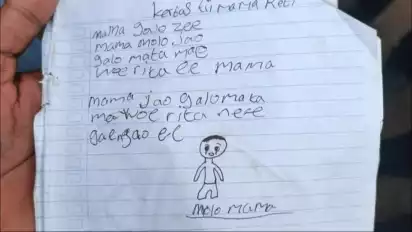 Kertas tii mama Reti
mama galo zee
mama molo jao
galo mata mae
woe rita ee mama
mama jao galo mata
mae woe rita nee
gaengao ee
molo mama